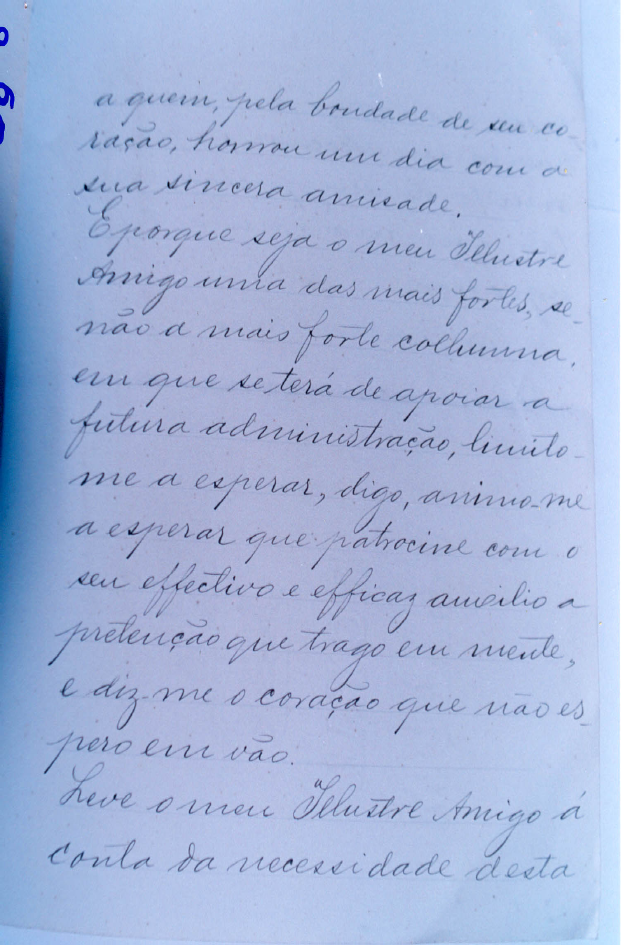 a quem, pela bondade de seu co-
ração, honrou um dia com a
sua sincera amisade.
E porque seja o meu Illustre
Amigo uma das mais fortes, se-
não a mais forte collumna,
em que se terá de apoiar a
futura administração, limito-
me a esperar, digo, animo-me
a esperar que patrocine com o
seu effectivo e efficaz auxilio a
pretenção que trago em mente,
e diz-me o coração que não es-
pero em vão.
Leve o meu Illustre Amigo á
conta da necessidade desta